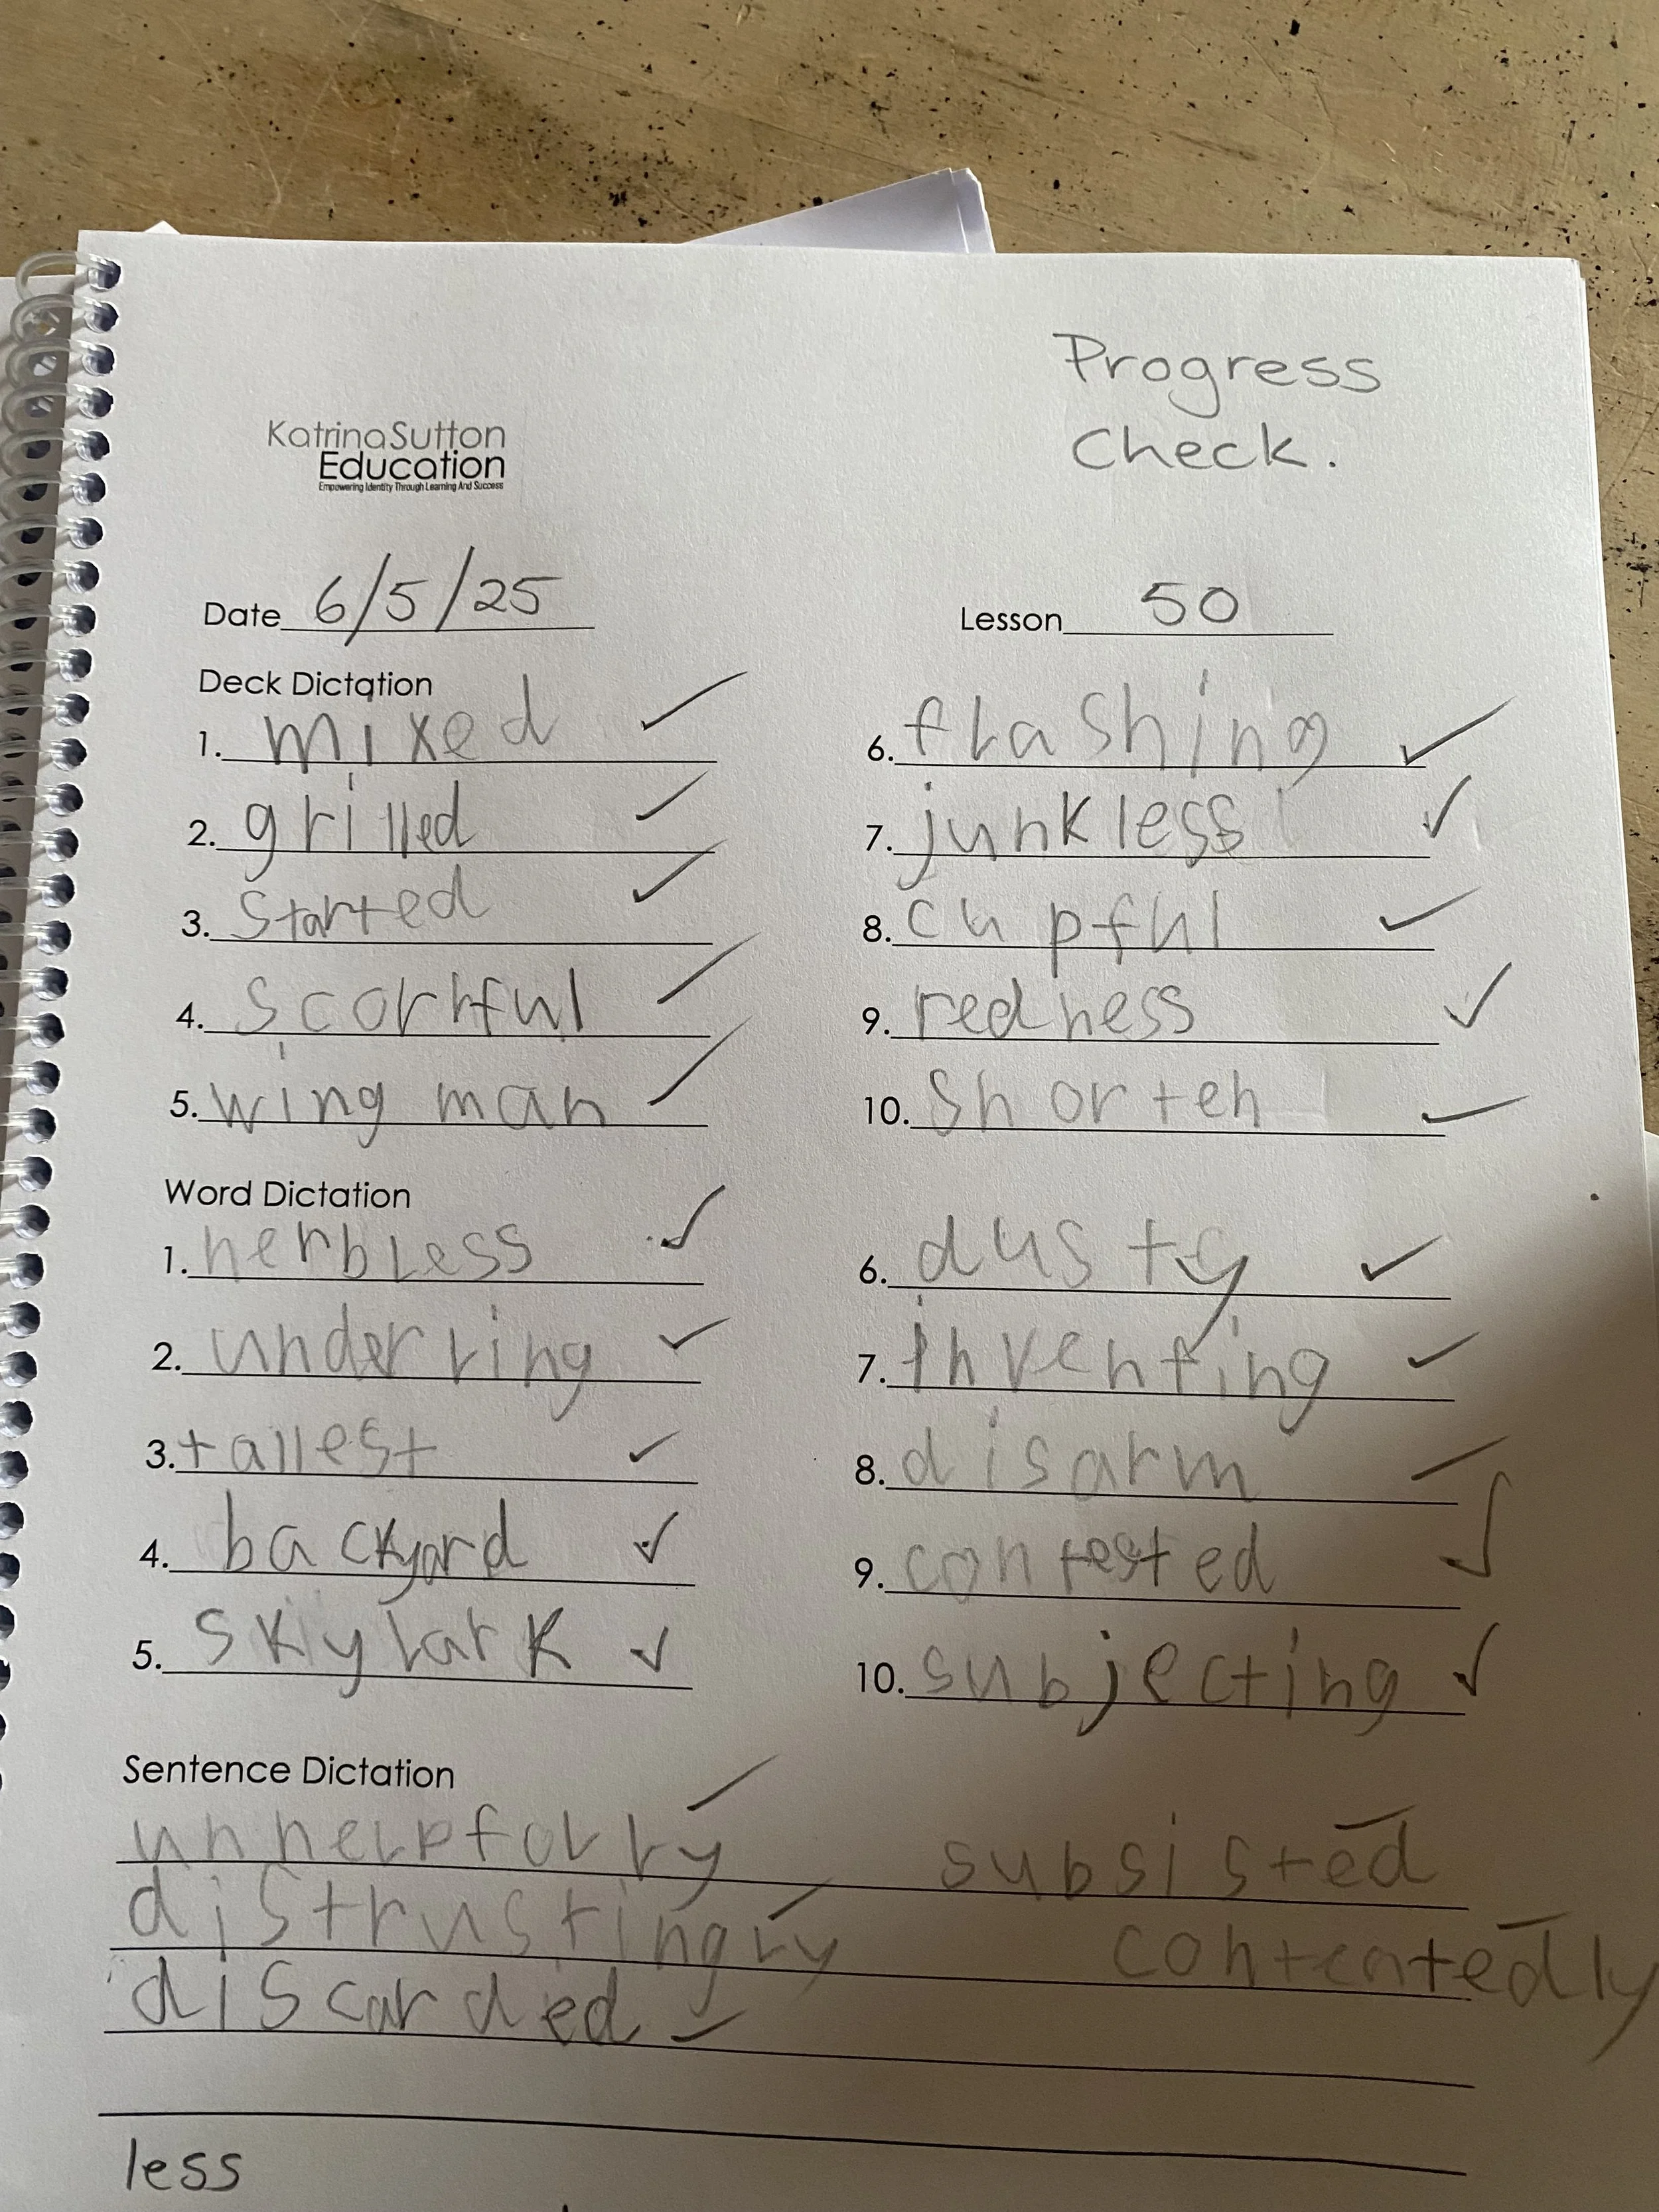 Progress
Check.
KatrinaSutton
Education
Empowering Identity Through Learning And Success
Date 6/5/25
Lesson 50
Deck Dictation
1. mixed
2. grilled
3. started
4. scornful
5. wing man
6. flashing
7. junkless
8. cupful
9. redness
10. shorten
Word Dictation
1. herbless
2. underling
3. tallest
4. backyard
5. skylark
6. dusty
7. inventing
8. disarm
9. contested
10. subjecting
Sentence Dictation
unhelpfully subsisted
distrustingly contentedly
discarded
less